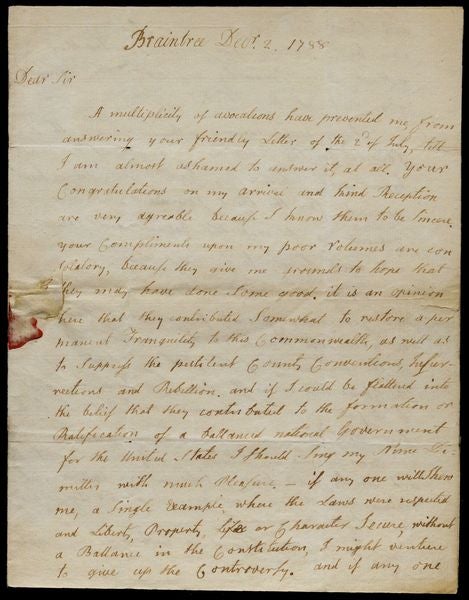 Braintree Decr. 2. 1788
Dear Sir
A multiplicity of avocations have prevented me, from
answering your friendly Letter of the 2d of July, till
I am almost ashamed to answer it, at all. Your
Congratulations on my arrival and kind Reception
are very agreable because I know them to be sincere.
your Compliments upon my poor volumes are con
solatory, because they give me grounds to hope that
they may have done Some good. it is an opinion
here that they contributed Somewhat to restore a per
manent Tranquility to this Commonwealth, as well as
to Suppress the pestilent County Conventions, Insur-
rections and Rebellion. and if I could be flattered into
the belief that they contributed to the formation or
Ratification of a ballanced national Government
for the United States I Should Sing my Nunc Di-
mittis with much Pleasure. — if any one will shew
me, a Single Example, where the Laws were respected
and Liberty, Property, life or Character Secure, without
a Ballance in the Constitution, I might venture
to give up the Controversy. and if any one